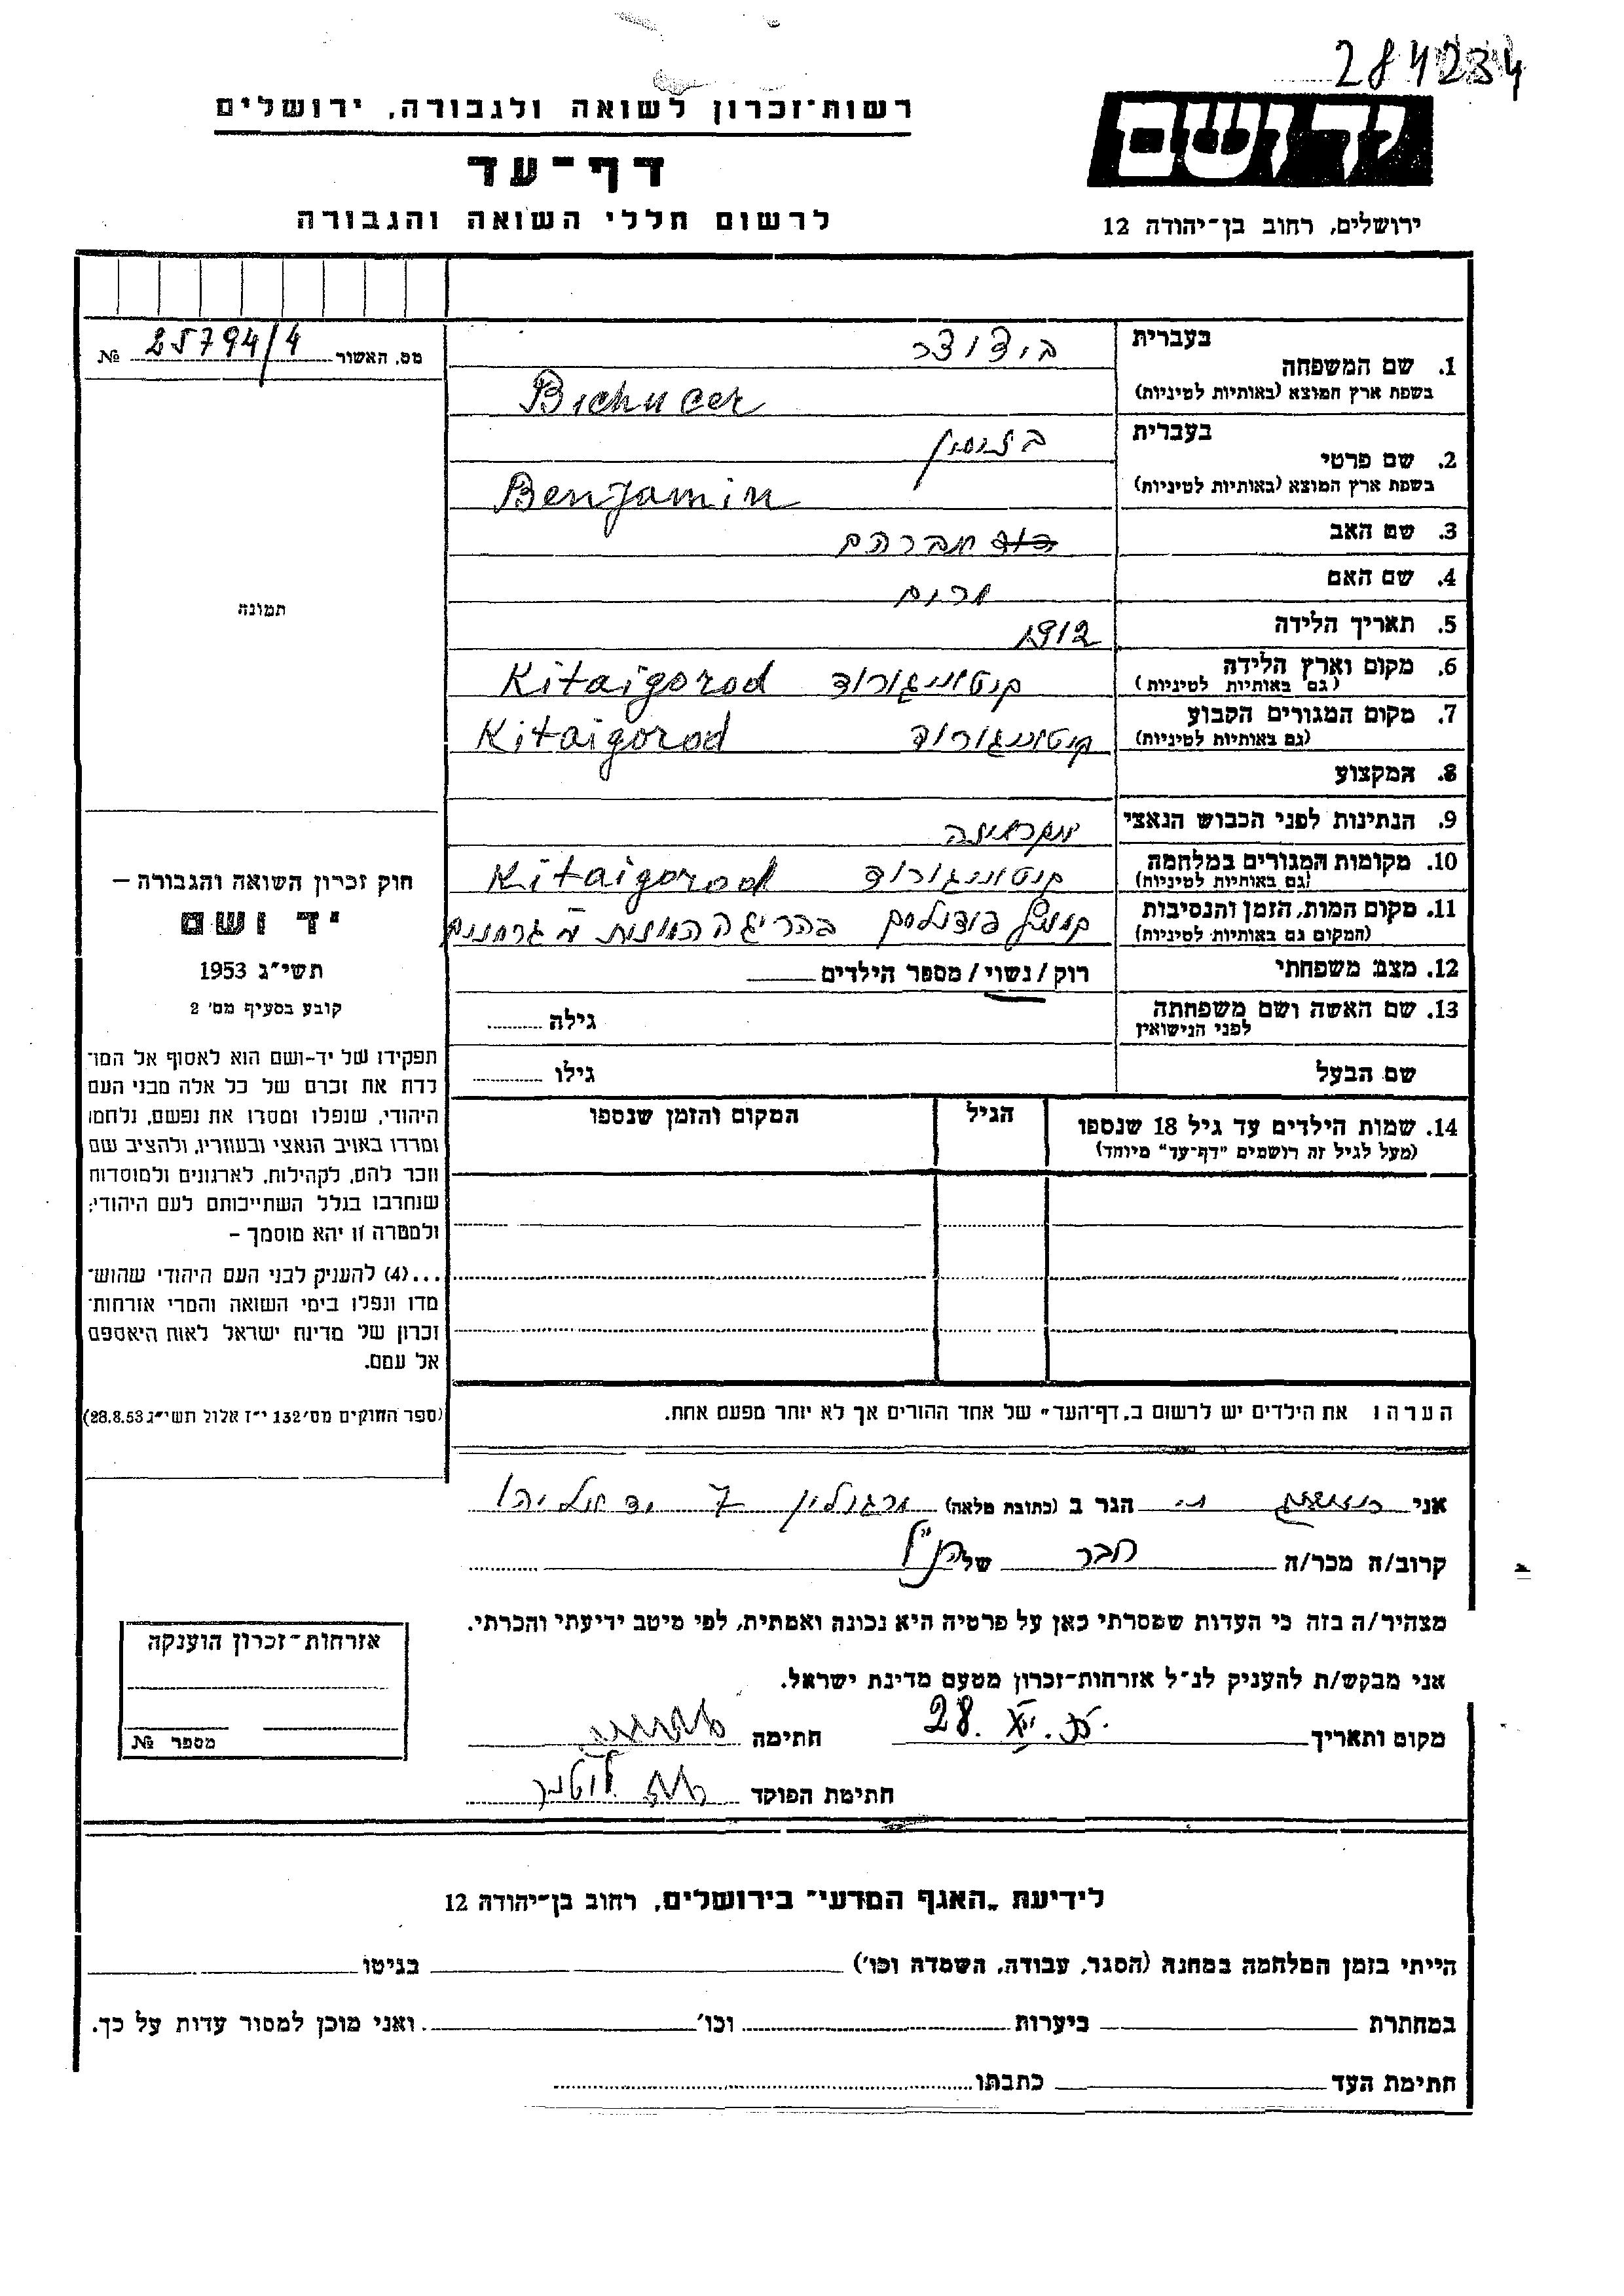 284234
רשות־זכרון לשואה ולגבורה, ירושלים
יד ושם
דף־עד
לרשום חללי השואה והגבורה
ירושלים, רחוב בן־יהודה 12
מס. האשור 25794/4 №
1. שם המשפחה
בעברית
בשפת ארץ המוצא (באותיות לטיניות)
Bichucer
2. שם פרטי
בעברית
בשפת ארץ המוצא (באותיות לטיניות)
Benjamin
3. שם האב אברהם
4. שם האם מרים
5. תאריך הלידה 1912
6. מקום וארץ הלידה קיטאיגורוד Kitaigorod
(גם באותיות לטיניות)
7. מקום המגורים הקבוע קיטאיגורוד Kitaigorod
(גם באותיות לטיניות)
8. המקצוע
9. הנתינות לפני הכבוש הנאצי אוקראינה
10. מקומות המגורים במלחמה קיטאיגורוד Kitaigorod
(גם באותיות לטיניות)
11. מקום המות, הזמן והנסיבות פודולסק בהריגה
(המקום גם באותיות לטיניות)
12. מצב משפחתי רוק / נשוי / מספר הילדים
13. שם האשה ושם משפחתה
לפני הנישואין
גילה
שם הבעל גילו
14. שמות הילדים עד גיל 18 שנספו
(מעל לגיל זה רושמים "דף־עד" מיוחד)
הגיל
המקום והזמן שנספו
תמונה
חוק זכרון השואה והגבורה –
יד ושם
תשי״ג 1953
קובע בסעיף מס׳ 2
תפקידו של יד-ושם הוא לאסוף אל המו־
לדת את זכרם של כל אלה מבני העם
היהודי, שנפלו ומסרו את נפשם, נלחמו
ומרדו באויב הנאצי ובעוזריו, ולהציב שם
וזכר להם, לקהילות, לארגונים ולמוסדות
שנחרבו בגלל השתייכותם לעם היהודי;
ולמטרה זו יהא מוסמך –
...(4) להעניק לבני העם היהודי שהוש־
מדו ונפלו בימי השואה והמרי אזרחות־
זכרון של מדינת ישראל לאות היאספם
אל עמם.
(ספר החוקים מס׳ 132 י״ז אלול תשי״ג 28.8.53)
הערה: את הילדים יש לרשום ב„דף־העד" של אחד ההורים אך לא יותר מפעם אחת.
אני הגר ב (כתובת מלאה) מרגולין 7 יד אליהו
קרוב/ה מכר/ה חבר של הנ"ל
מצהיר/ה בזה כי העדות שמסרתי כאן על פרטיה היא נכונה ואמתית, לפי מיטב ידיעתי והכרתי.
אני מבקש/ת להעניק לנ״ל אזרחות־זכרון מטעם מדינת ישראל.
מקום ותאריך 28. חתימה
חתימת הפוקד
אזרחות־זכרון הוענקה
מספר №
לידיעת „האגף המדעי" בירושלים, רחוב בן־יהודה 12
הייתי בזמן המלחמה במחנה (הסגר, עבודה, השמדה וכו׳) בגיטו
במחתרת ביערות וכו׳ ואני מוכן למסור עדות על כך.
חתימת העד כתבתו